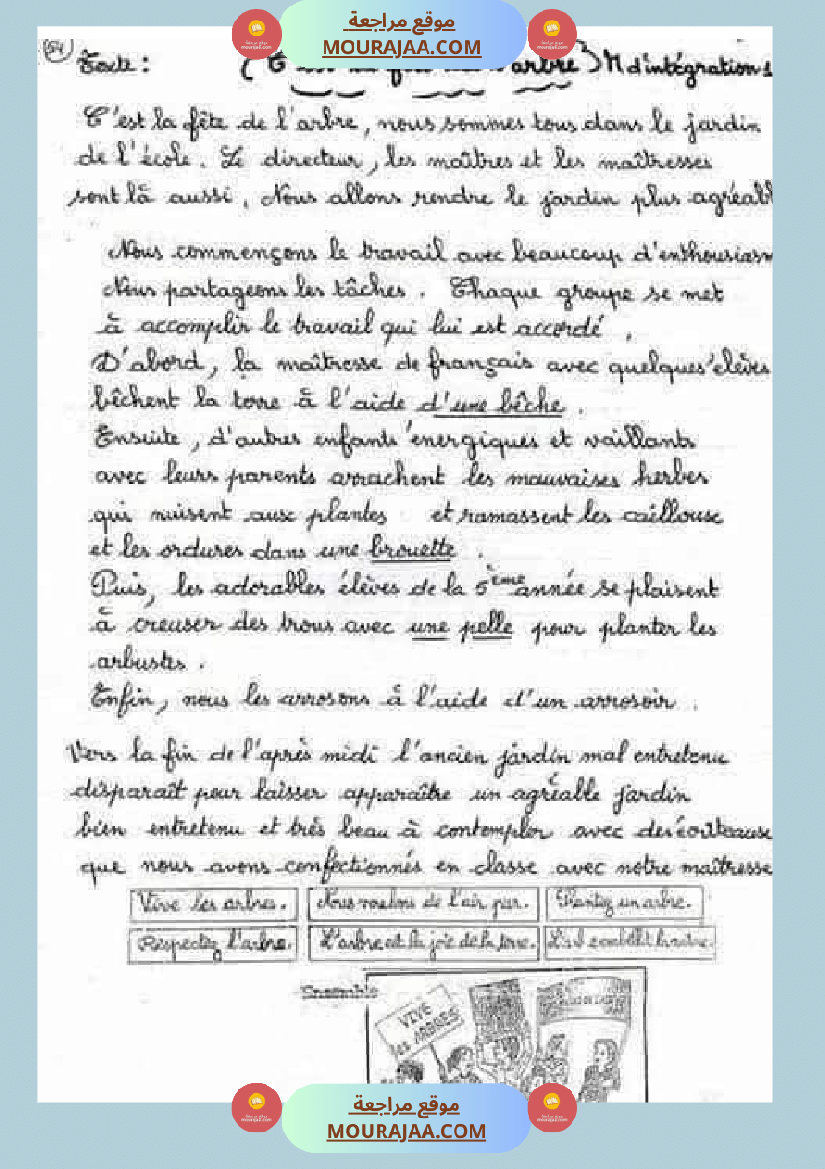 موقع مراجعة
MOURAJAA.COM
54
Texte : ( l'arbre ) M d'intégration 1
C'est la fête de l'arbre, nous sommes tous dans le jardin
de l'école. Le directeur, les maîtres et les maîtresses
sont là aussi. Nous allons rendre le jardin plus agréabl
Nous commençons le travail avec beaucoup d'enthousiasm
Nous partageons les tâches. Chaque groupe se met
à accomplir le travail qui lui est accordé.
D'abord, la maîtresse de français avec quelques élèves
bêchent la terre à l'aide d'une bêche.
Ensuite, d'autres enfants énergiques et vaillants
avec leurs parents arrachent les mauvaises herbes
qui nuisent aux plantes et ramassent les cailloux
et les ordures dans une brouette.
Puis, les adorables élèves de la 5ème année se plaisent
à creuser des trous avec une pelle pour planter les
arbustes.
Enfin, nous les arrosons à l'aide d'un arrosoir.
Vers la fin de l'après midi l'ancien jardin mal entretenu
disparaît pour laisser apparaître un agréable jardin
bien entretenu et très beau à contempler avec des écriteaux
que nous avons confectionnés en classe avec notre maîtresse
Vive les arbres. Nous voulons de l'air pur. Plantez un arbre.
Respectez l'arbre. L'arbre est la joie de la terre. embellit
Ensemble
VIVE
les ARBRES
موقع مراجعة
MOURAJAA.COM